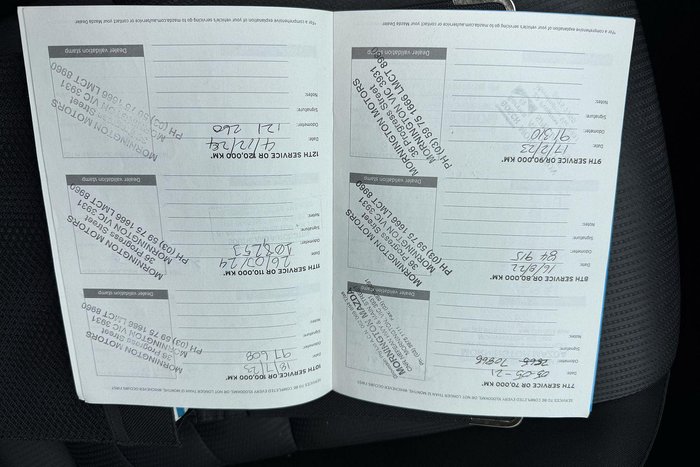 7TH SERVICE OR 70,000 KM*
Dealer validation stamp
Date:
-05-21
Odometer:
70866
Signature:
Notes:
MORNINGTON MAZDA
8TH SERVICE OR 80,000 KM*
Dealer validation stamp
Date:
16/8/22
Odometer:
84 915
Signature:
Notes:
MORNINGTON MOTORS
36 Progress Street
MORNINGTON VIC 3931
PH (03) 59 75 1666 LMCT 8960
9TH SERVICE OR 90,000 KM*
Dealer validation stamp
Date:
17/2/23
Odometer:
91310
Signature:
Notes:
MORNINGTON MOTORS
36 Progress Street
MORNINGTON VIC 3931
PH (03) 59 75 1666 LMCT 8960
*For a comprehensive explanation of your vehicles servicing go to mazda.com.au/service or contact your Mazda Dealer
SERVICES TO BE COMPLETED EVERY 10,000KMS, OR NOT LONGER THAN 12 MONTHS, WHICHEVER OCCURS FIRST
10TH SERVICE OR 100,000 KM*
Dealer validation stamp
Date:
18/7/23
Odometer:
97 608
Signature:
Notes:
MORNINGTON MOTORS
36 Progress Street
MORNINGTON VIC 3931
PH (03) 59 75 1666 LMCT 8960
11TH SERVICE OR 110,000 KM*
Dealer validation stamp
Date:
26/03/24
Odometer:
108,253
Signature:
Notes:
MORNINGTON MOTORS
36 Progress Street
MORNINGTON VIC 3931
PH (03) 59 75 1666 LMCT 8960
12TH SERVICE OR 120,000 KM*
Dealer validation stamp
Date:
4/12/24
Odometer:
121 260
Signature:
Notes:
MORNINGTON MOTORS
36 Progress Street
MORNINGTON VIC 3931
PH (03) 59 75 1666 LMCT 8960
*For a comprehensive explanation of your vehicles servicing go to mazda.com.au/service or contact your Mazda Dealer